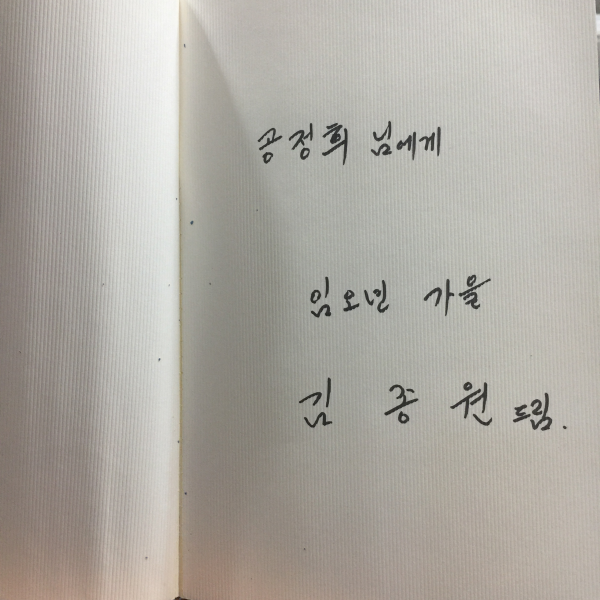 공정희 님에게
임오년 가을
김 종 원 드림.